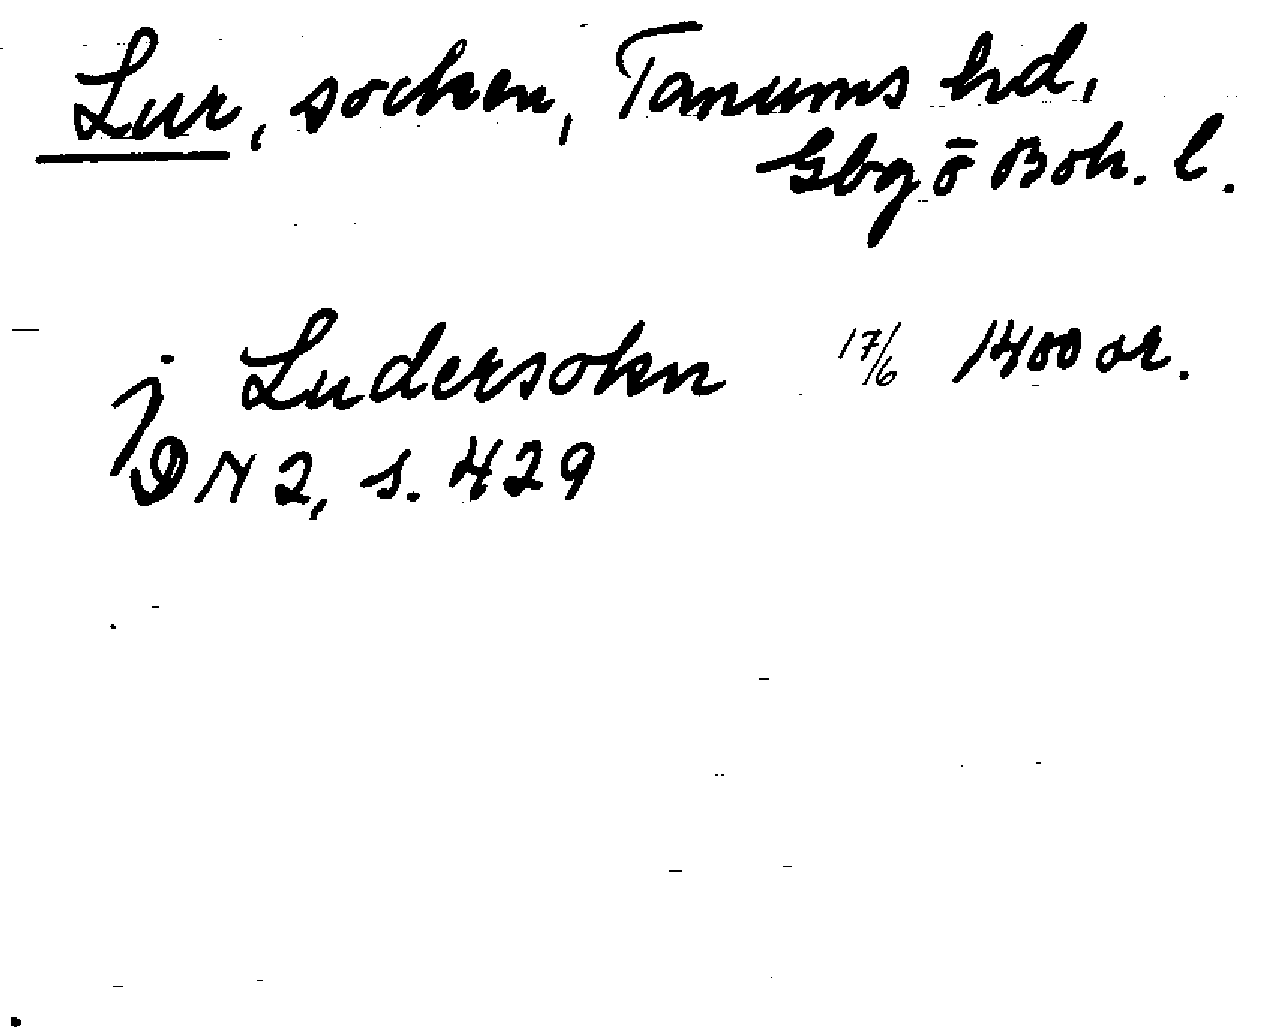 Lur, socken, Tanums hd,
Gbg ō Boh. l.
j Ludersokn 17/6 1400 or.
DN 2, s. 429